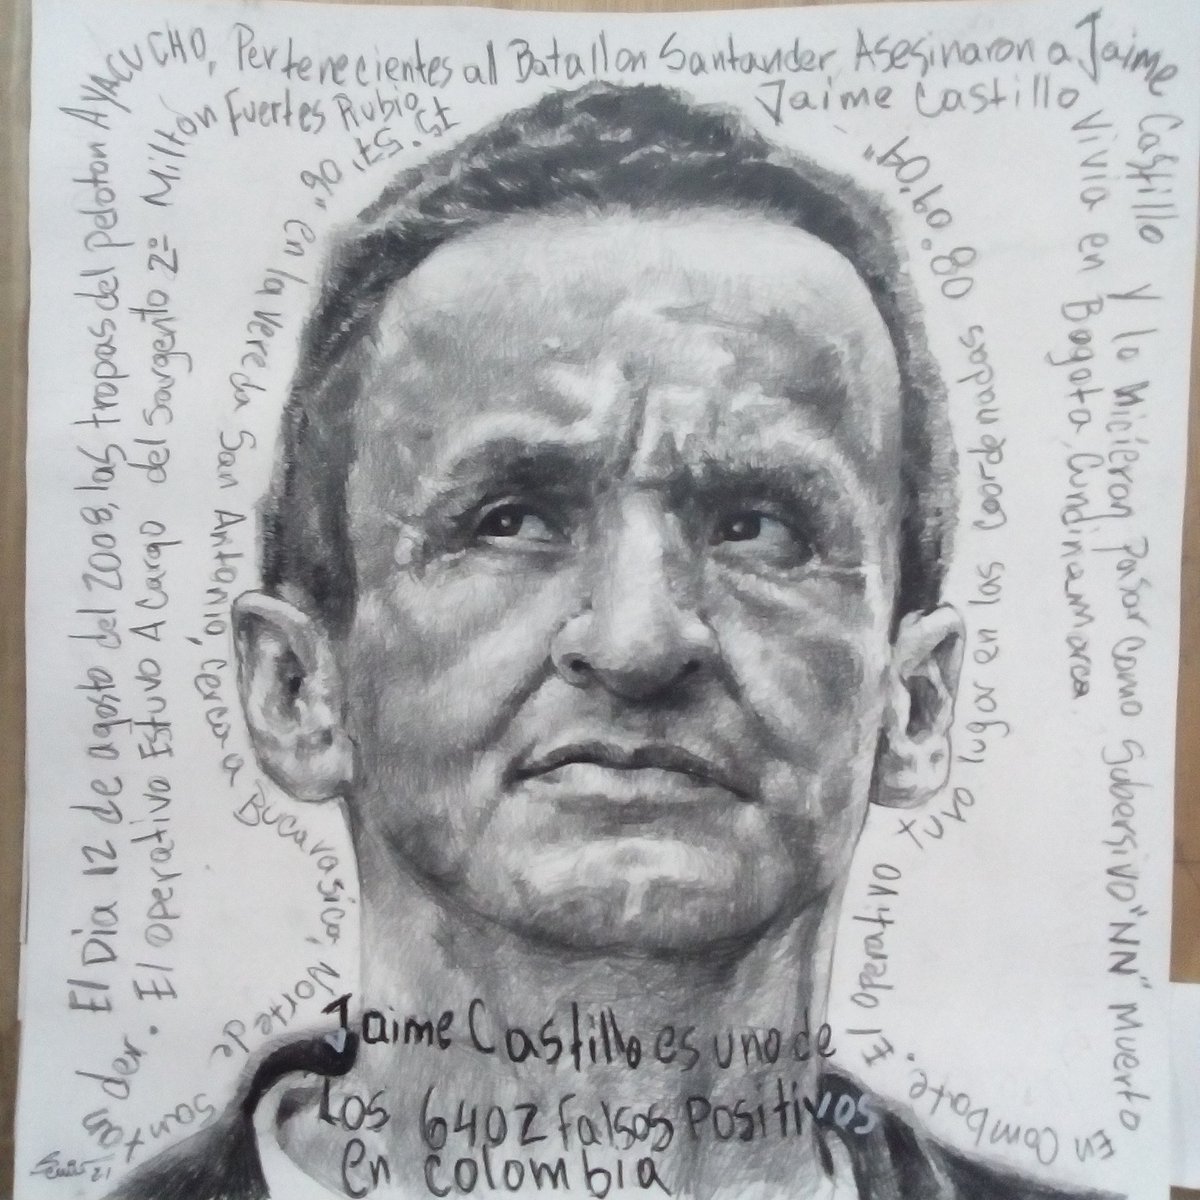 El Dia 12 de agosto del 2008, las tropas del peloton AYACUCHO, Pertenecientes al Batallon Santander, Asesinaron a Jaime Castillo y lo hicieron Pasar como Subersivo "NN" Muerto en Combate.
El operativo tuvo lugar en las Coordenadas 08°09'.04"
73°.57'.06" en la vereda San Antonio, cerca a Bucarasica, Norte de Santander.
El operativo Estuvo A Cargo del Sargento 2º Milton Fuertes Rubio
Jaime Castillo vivia en Bogota, Cundinamarca.
Jaime Castillo es uno de
Los 6402 falsos Positivos
en colombia